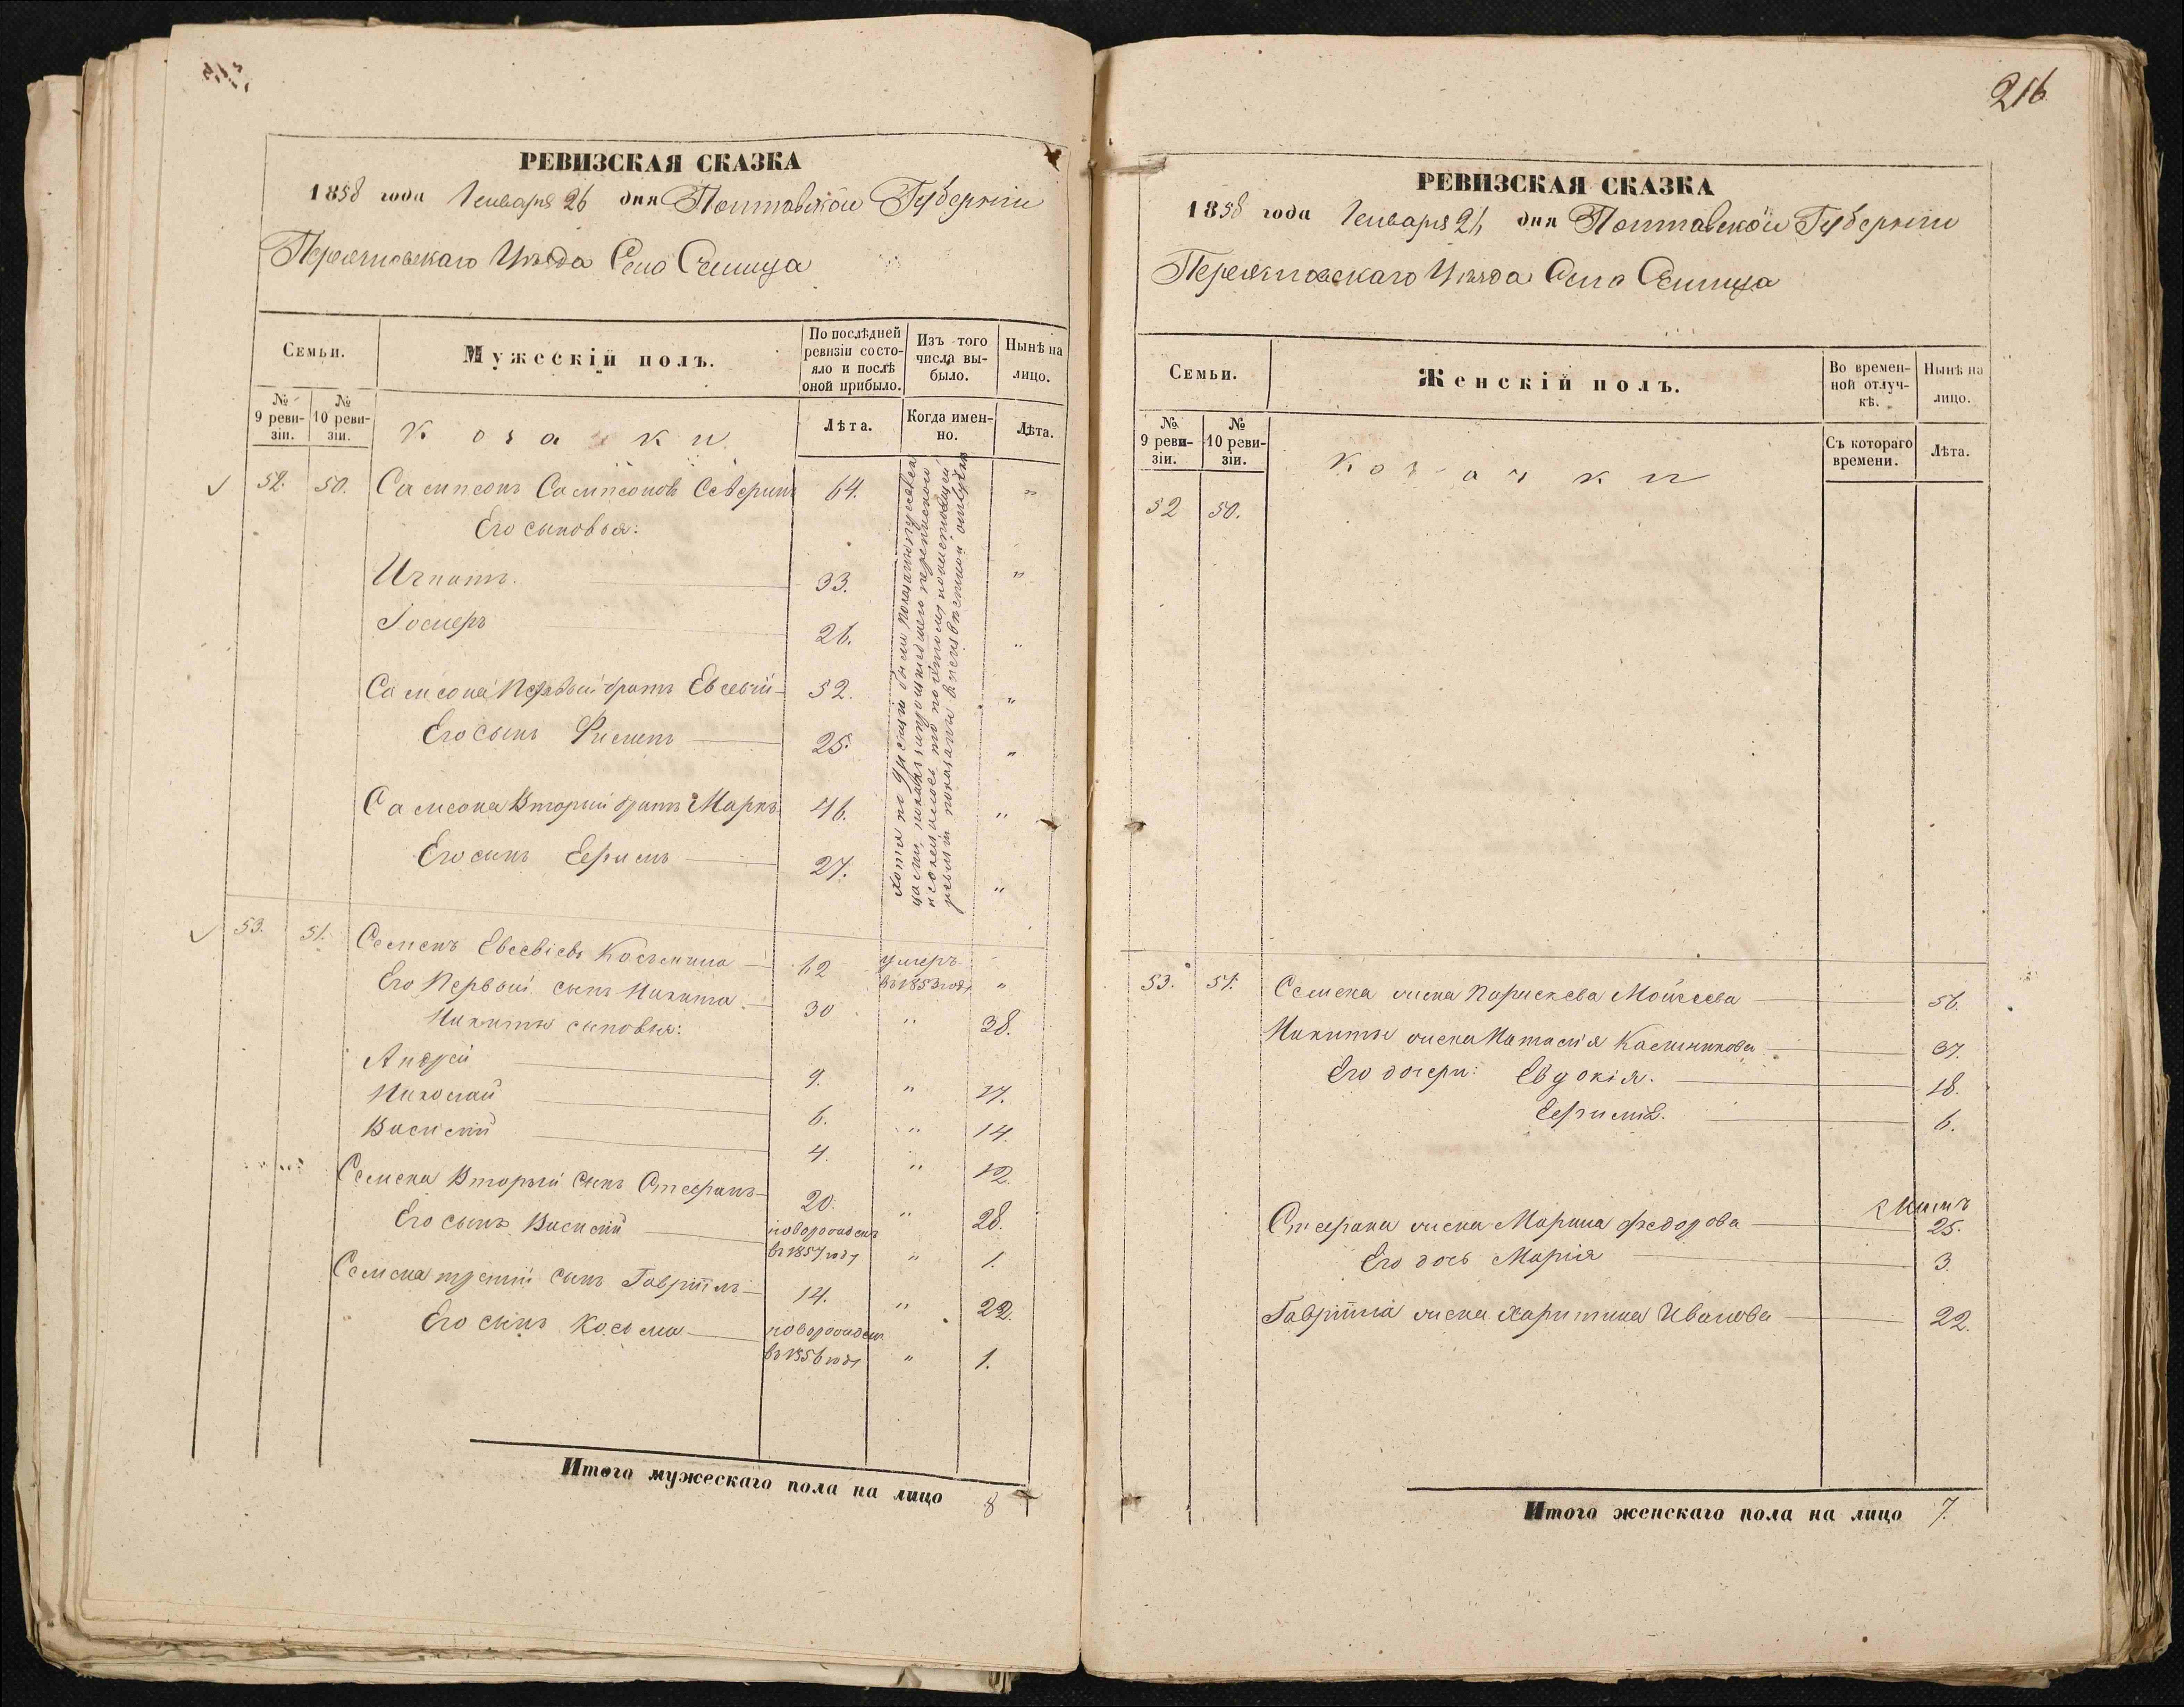 РЕВИЗСКАЯ СКАЗКА
1858 года Января 26 дня Полтавской Губернии
Переяславскаго Уѣзда Села Селища
Семьи.
Мужескій полъ.
По послѣдней ревизіи состояло и послѣ оной прибыло.
Изъ того числа выбыло.
Нынѣ на лицо.
№ 9 ревизіи.
№ 10 ревизіи.
Козаки
Лѣта.
Когда именно.
Лѣта.
52. 50. Сампсонъ Сампсоновъ 64. "
Его сыновья:
Игнатъ. 33. "
26. "
Самсона Первый братъ Евсевій 52. "
Его сынъ 25. "
Самсона Вторый братъ Марко 46. "
Его сынъ Ефримъ 27. "
53. 51. Семенъ Евсевіевъ Косьмина 62 умеръ въ 1853 году "
Его Первый сынъ Никита 30 " 38.
Никиты сыновья:
Андрей 9. " 17.
Николай 6. " 14.
Василій 4. " 12.
Семена Вторый сынъ Стефанъ 20. " 28.
Его сынъ Василій новорожденъ въ 1857 году " 1.
Семена третій сынъ Гавріилъ 14. " 22.
Его сынъ Косьма новорожден въ 1856 году " 1.
Итого мужескаго пола на лицо 8
216
РЕВИЗСКАЯ СКАЗКА
1858 года Января 26 дня Полтавской Губернии
Переяславскаго Уѣзда Села Селища
Семьи.
Женскій полъ.
Во временной отлучкѣ.
Нынѣ на лицо.
№ 9 ревизіи.
№ 10 ревизіи.
Козачки
Съ котораго времени.
Лѣта.
52 50.
53. 51. Семена жена Парискева Мойсеева 56.
Никиты жена Наталія 37.
Его дочери: Евдокія. 18.
Ефимія. 6.
Стефана жена Марина Федорова 25.
Его дочь Марія 3.
Гавріила жена Харитина Иванова 22.
Итого женскаго пола на лицо 7.